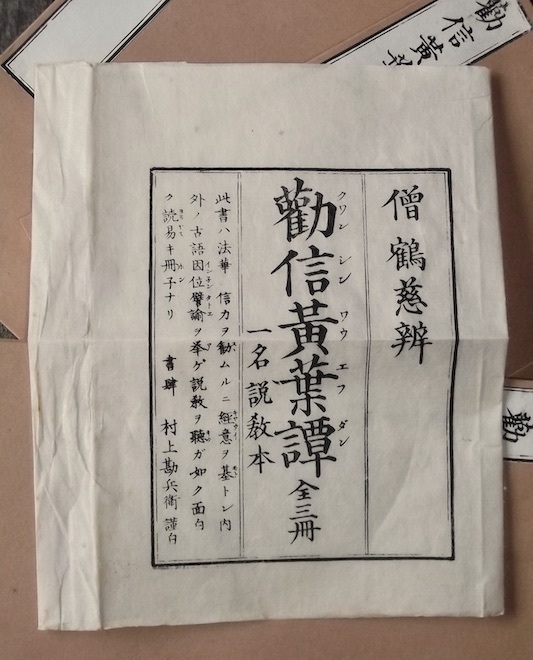 僧鶴慈辨
勸信黃葉譚 全三冊
クワン シン ワウ エフ ダン
一名説教本
此書ハ法華信力ヲ勧ムルニ経意ヲ基トシ内
外ノ古語因位譬諭ヲ挙ゲ説教ヲ聽ガ如ク面白
ク読易キ冊子ナリ 書肆 村上勘兵衛 謹白
勸信黃葉
勸